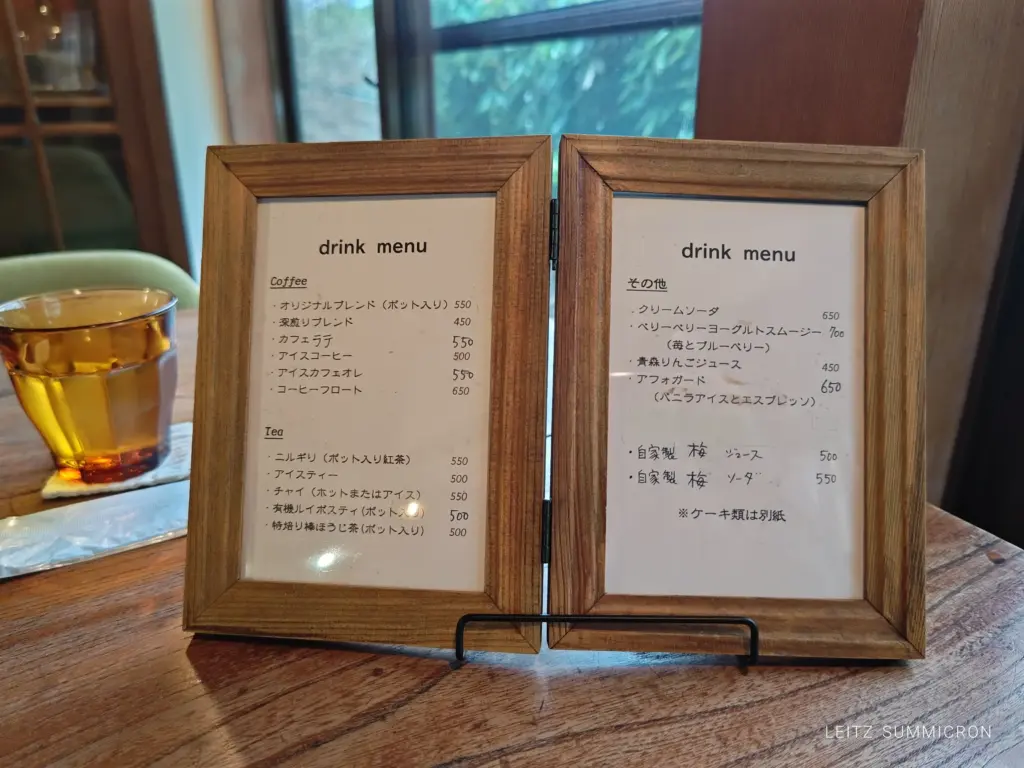 drink menu
Coffee
・オリジナルブレンド（ポット入り）550
・深煎りブレンド 450
・カフェラテ 550
・アイスコーヒー 500
・アイスカフェオレ 550
・コーヒーフロート 650
Tea
・ニルギリ（ポット入り紅茶） 550
・アイスティー 500
・チャイ（ホットまたはアイス） 550
・有機ルイボスティ(ポット入り) 500
・特焙り棒ほうじ茶(ポット入り) 500
drink menu
その他
・クリームソーダ 650
・ベリーベリーヨーグルトスムージー 700
（苺とブルーベリー）
・青森りんごジュース 450
・アフォガード 650
（バニラアイスとエスプレッソ）
・自家製 梅 ジュース 500
・自家製 梅 ソーダ 550
※ケーキ類は別紙
LEITZ SUMMICRON